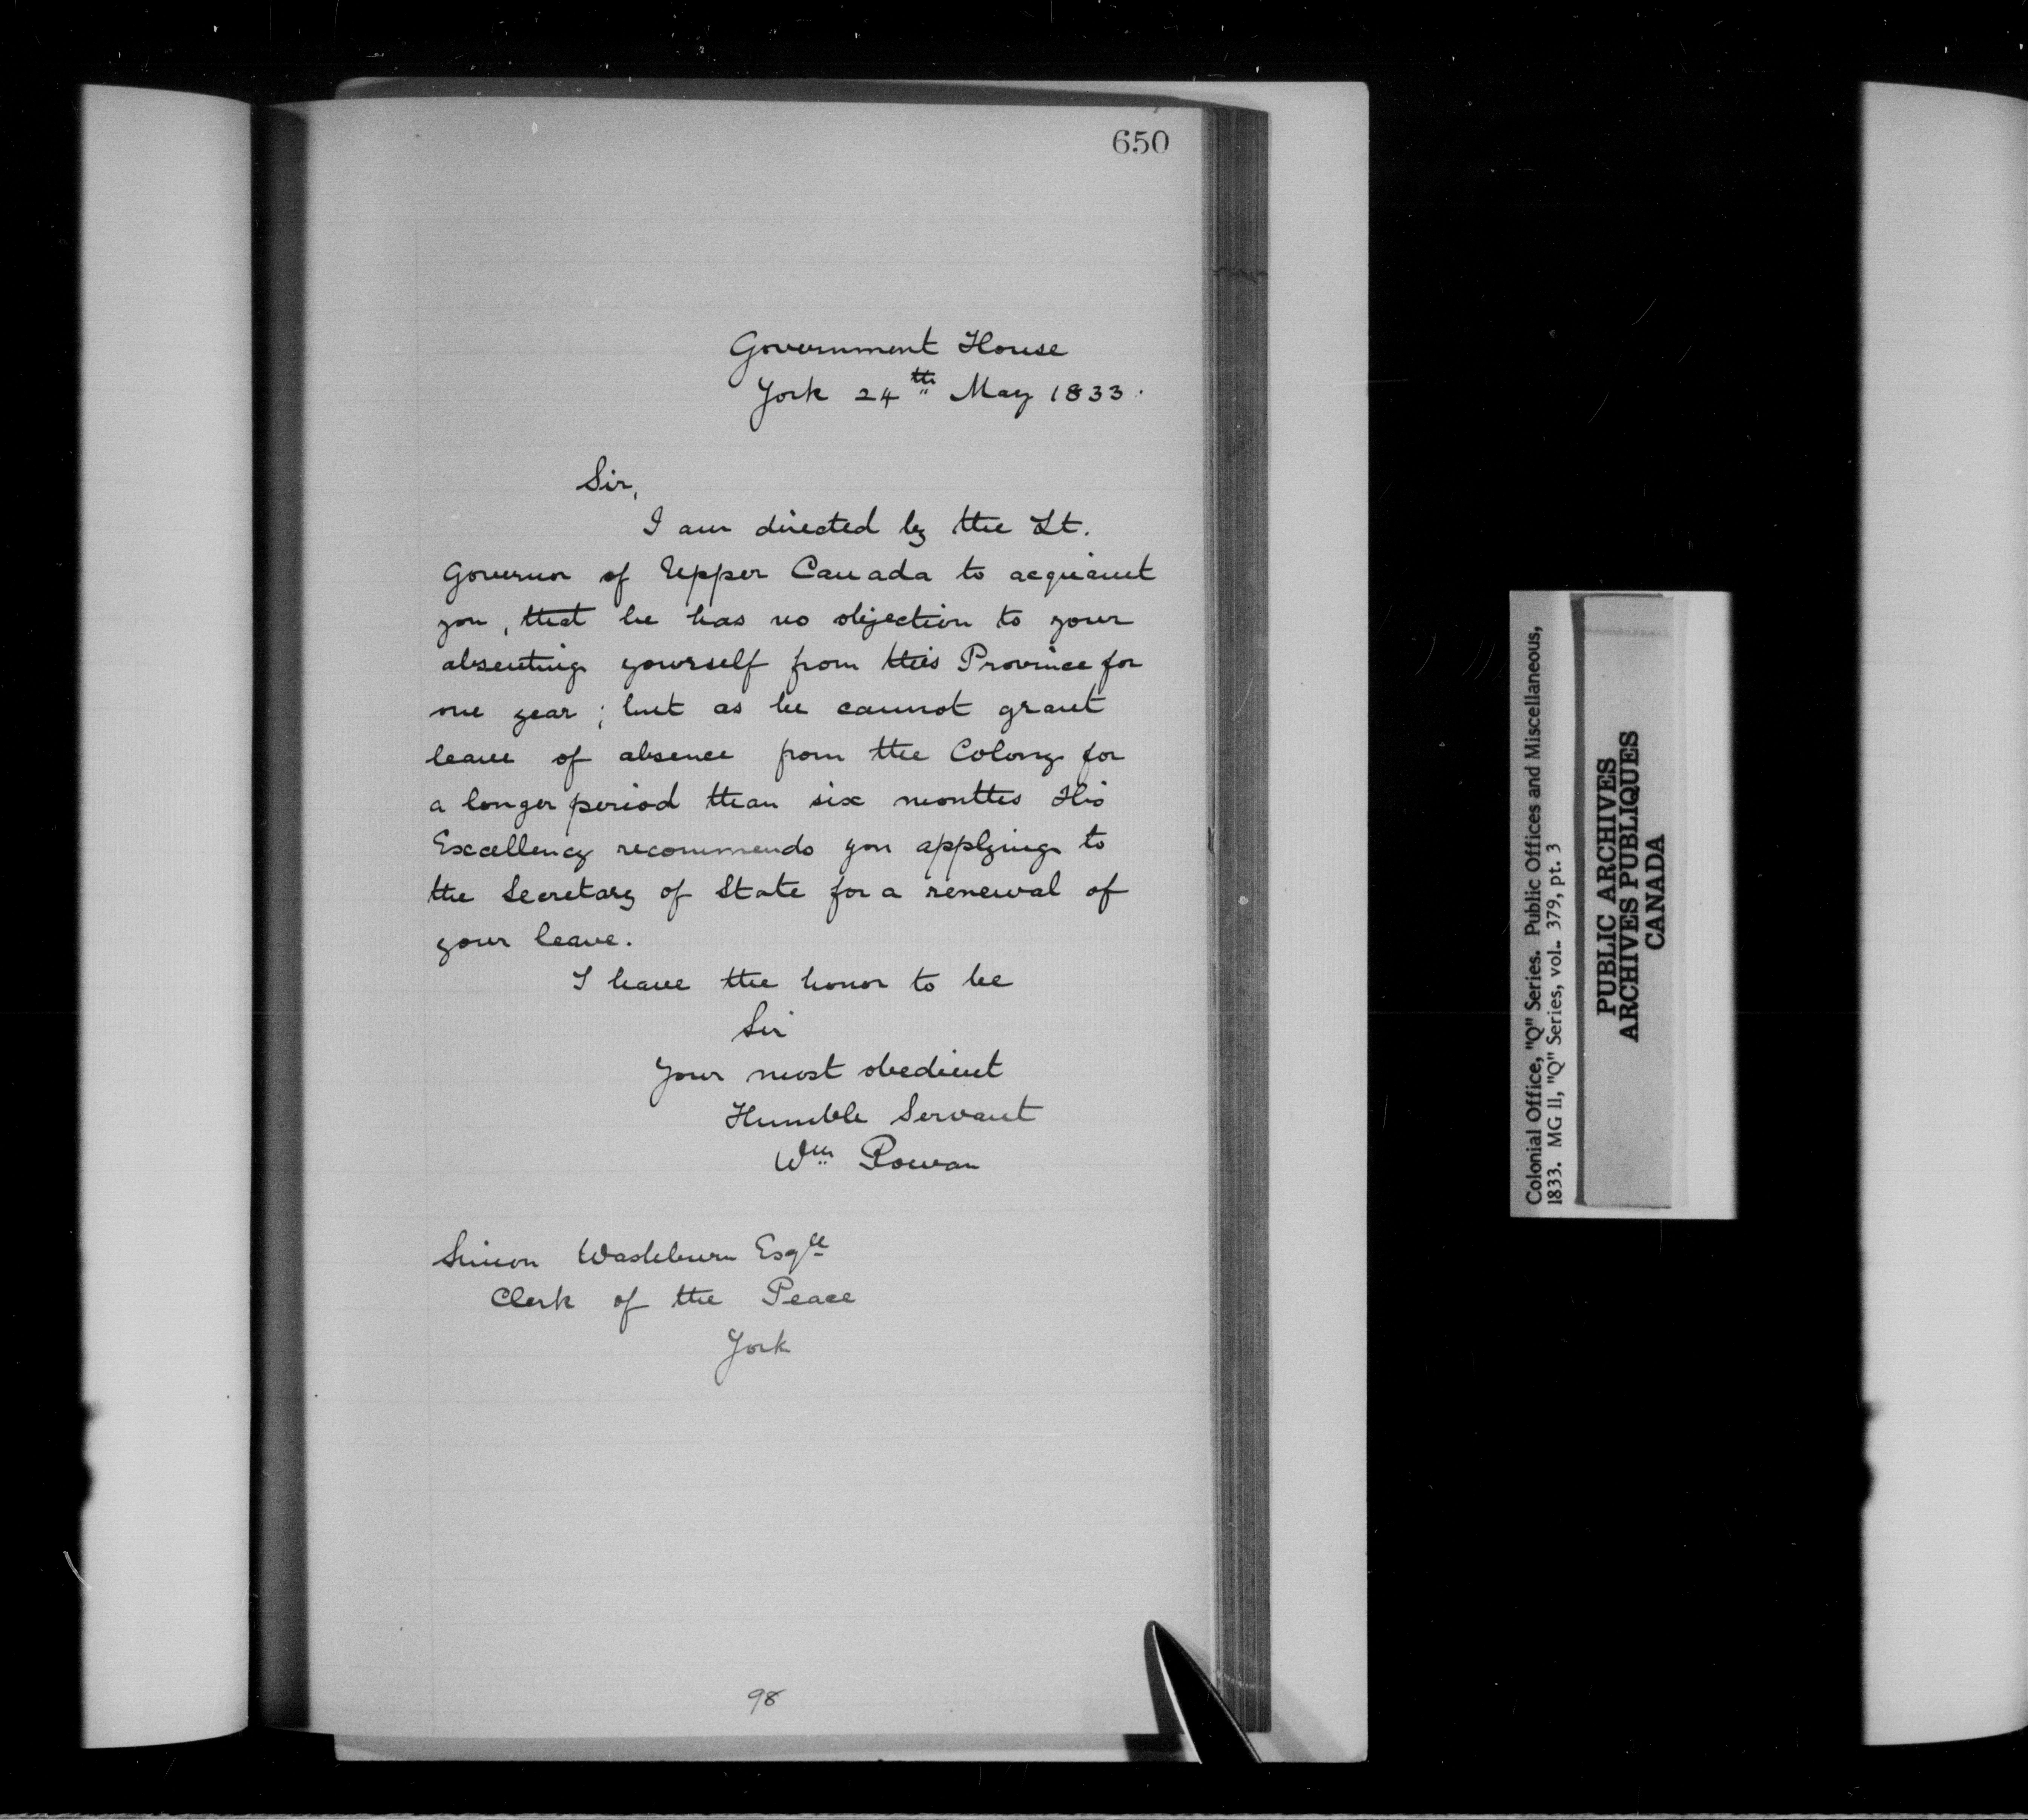 650
Government House
York 24th May 1833.
Sir,
I am directed by the Lt.
Governor of Upper Canada to acquaint
you, that he has no objection to your
absenting yourself from this Province for
one year; but as he cannot grant
leave of absence from the Colony for
a longer period than six months His
Excellency recommends you applying to
the Secretary of State for a renewal of
your leave.
I have the honor to be
Sir
Your most obedient
Humble Servant
Wm Rowan
Simon Washburn Esqre
Clerk of the Peace
York
98
Colonial Office, "Q" Series. Public Offices and Miscellaneous,
1833. MG 11, "Q" Series, vol. 379, pt. 3
PUBLIC ARCHIVES
ARCHIVES PUBLIQUES
CANADA